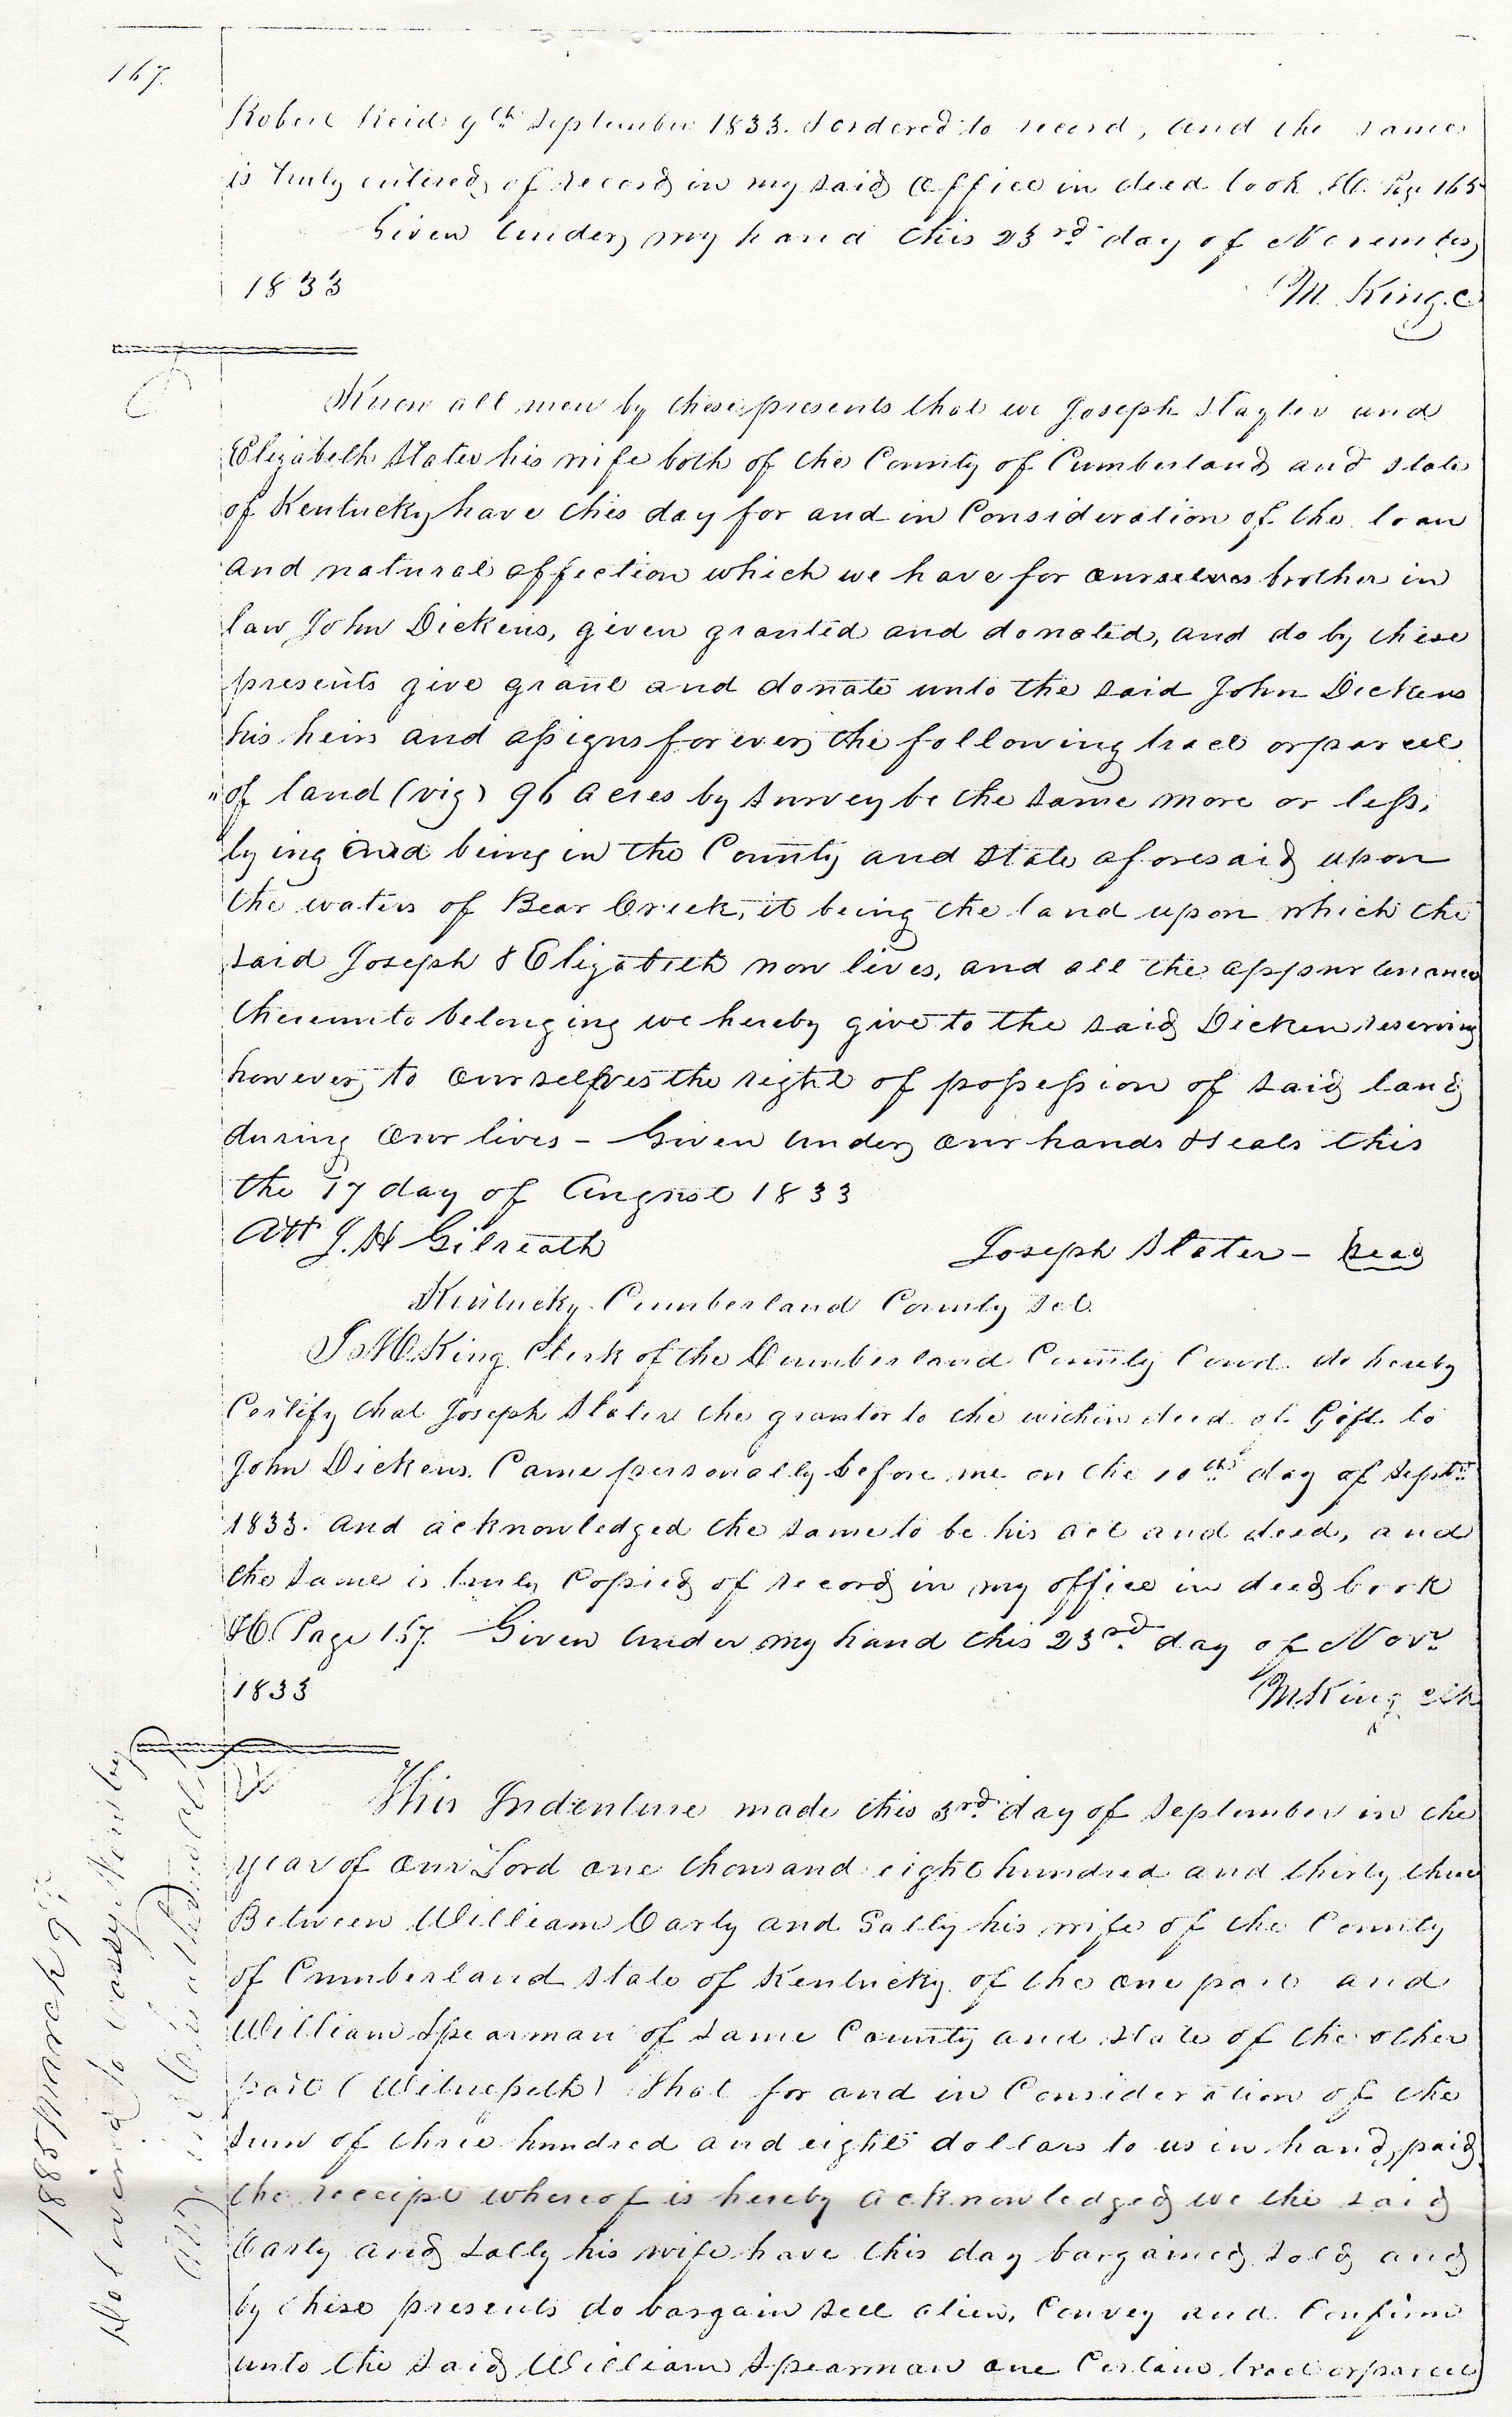 167.
Robert Reid 9th September 1833. & ordered to record, and the same
is truly entered of record in my said office in deed book H. Page 165
Given under my hand this 23rd day of November
1833
M. King. C
Know all men by these presents that we Joseph Slayter and
Elizabeth Slater his wife both of the County of Cumberland and state
of Kentucky have this day for and in Consideration of the loan
and natural affection which we have for ourselves brother in
law John Dickens, given granted and donated, and do by these
presents give grant and donate unto the said John Dickens
his heirs and assigns forever, the following tract or parcel
of land (viz) 96 acres by survey be the same more or less,
lying and being in the County and State aforesaid upon
the waters of Bear Creek, it being the land upon which the
said Joseph & Elizabeth now lives, and all the appurtenances
thereunto belonging we hereby give to the said Dicken reserving
however, to ourselves the right of possession of said land
during our lives - Given under our hands & seals this
the 17 day of August 1833
Att J. H Gilreath
Joseph Slater - Seal
Kentucky Cumberland County Sct.
I M. King Clerk of the Cumberland County Court do hereby
Certify that Joseph Slater the grantor to the within deed of Gift to
John Dickens. Came personally before me on the 10th day of Septr
1833. and acknowledged the same to be his act and deed, and
the same is truly Copied of record in my office in deed book
H. Page 167. Given under my hand this 23rd day of Novr
1833
M. King clk
This Indenture made this 3rd day of September in the
year of our Lord one thousand eight hundred and thirty three
Between William Carly and Sally his wife of the County
of Cumberland State of Kentucky of the one part and
William Spearman of same County and State of the other
part (Witnesseth) that for and in Consideration of the
sum of three hundred and eight dollars to us in hand, paid
the receipt whereof is hereby acknowledged we the said
Carly and Sally his wife have this day bargained, sold and
by these presents do bargain sell alien, Convey and Confirm
unto the said William Spearman one Certain tract or parcel
1885 March 9th
Delivered to